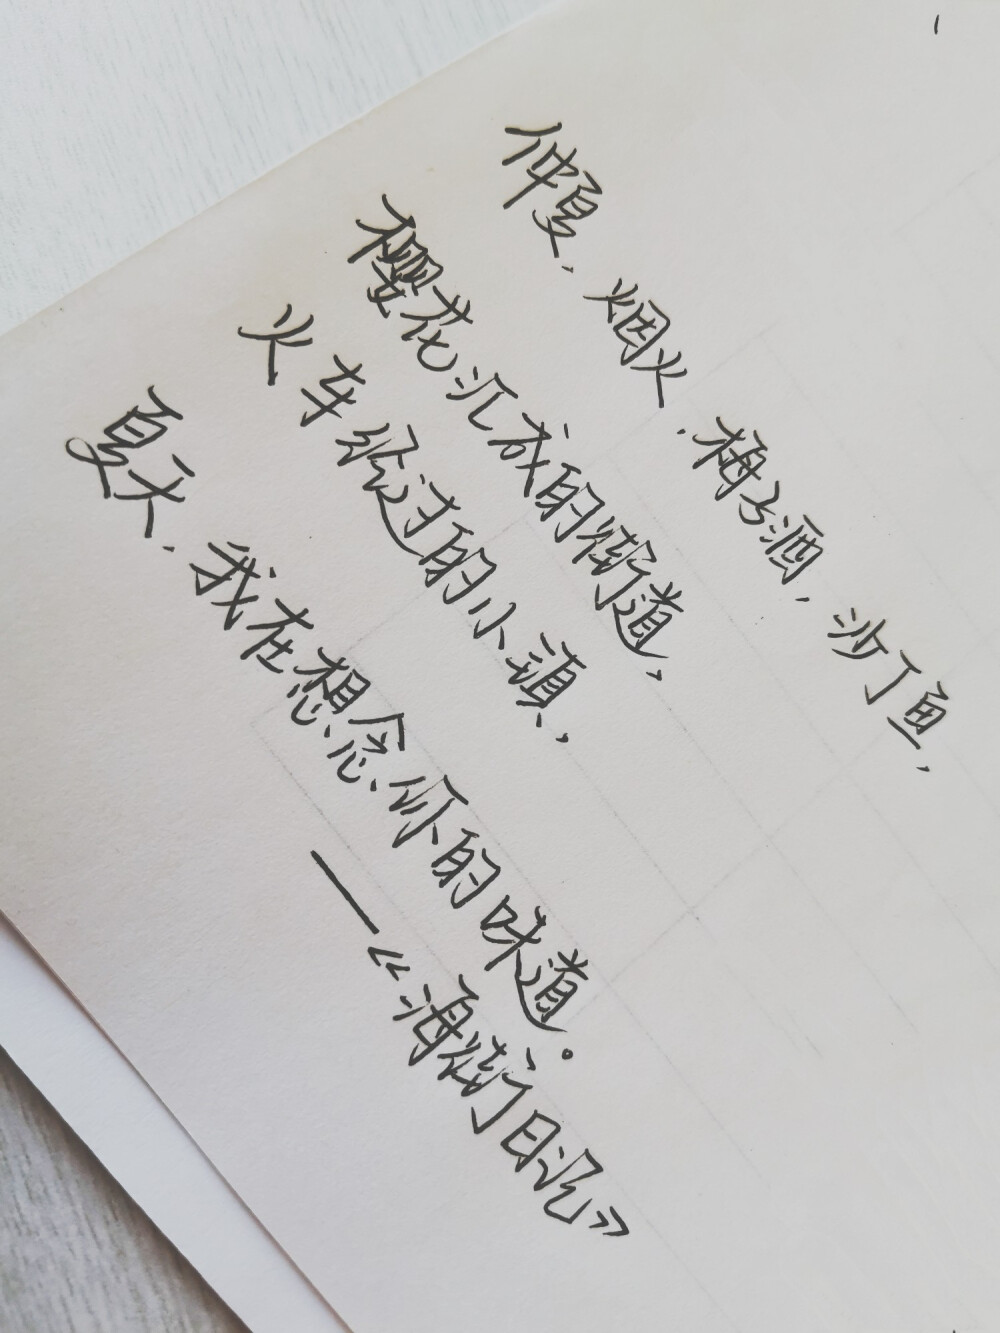 仲夏,烟火,梅子酒,沙丁鱼,
樱花汇成的街道,
火车经过的小镇,
夏天,我在想念你的味道。
——《海街日记》